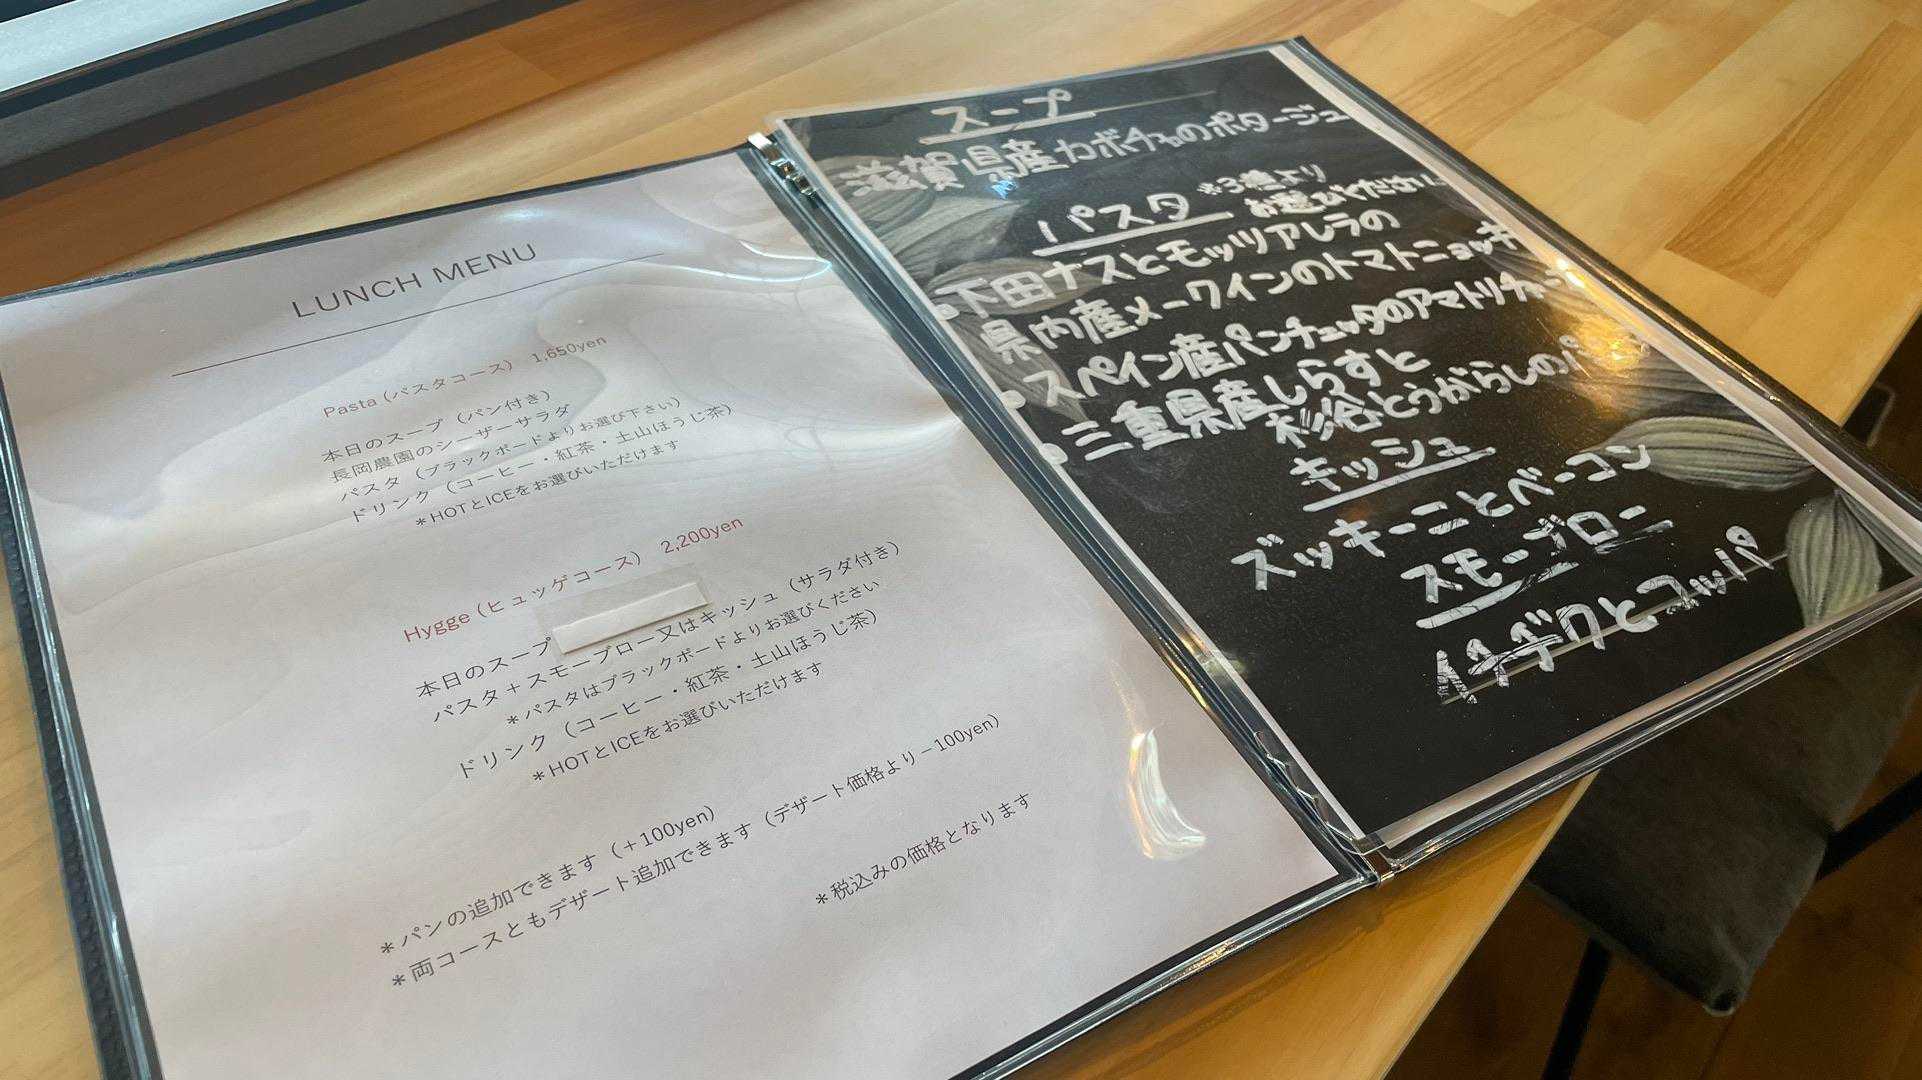 LUNCH MENU
Pasta (パスタコース) 1,650yen
本日のスープ (パン付き)
長岡農園のシーザーサラダ
パスタ (ブラックボードよりお選び下さい)
ドリンク (コーヒー・紅茶・土山ほうじ茶)
*HOTとICEをお選びいただけます
Hygge (ヒュッゲコース) 2,200yen
本日のスープ
パスタ+スモーブロー又はキッシュ (サラダ付き)
*パスタはブラックボードよりお選びください
ドリンク (コーヒー・紅茶・土山ほうじ茶)
*HOTとICEをお選びいただけます
*パンの追加できます (+100yen)
*両コースともデザート追加できます (デザート価格より−100yen)
*税込みの価格となります
スープ
滋賀県産カボチャのポタージュ
パスタ *3種より
お選びください
•下田ナスとモッツアレラの
県内産メークインのトマトニョッキ
•スペイン産パンチェッタのアマトリチャーナ
•三重県産しらすと
杉谷とうがらしのパ
キッシュ
ズッキーニとベーコン
スモーブロー
イチヂクとコッパ